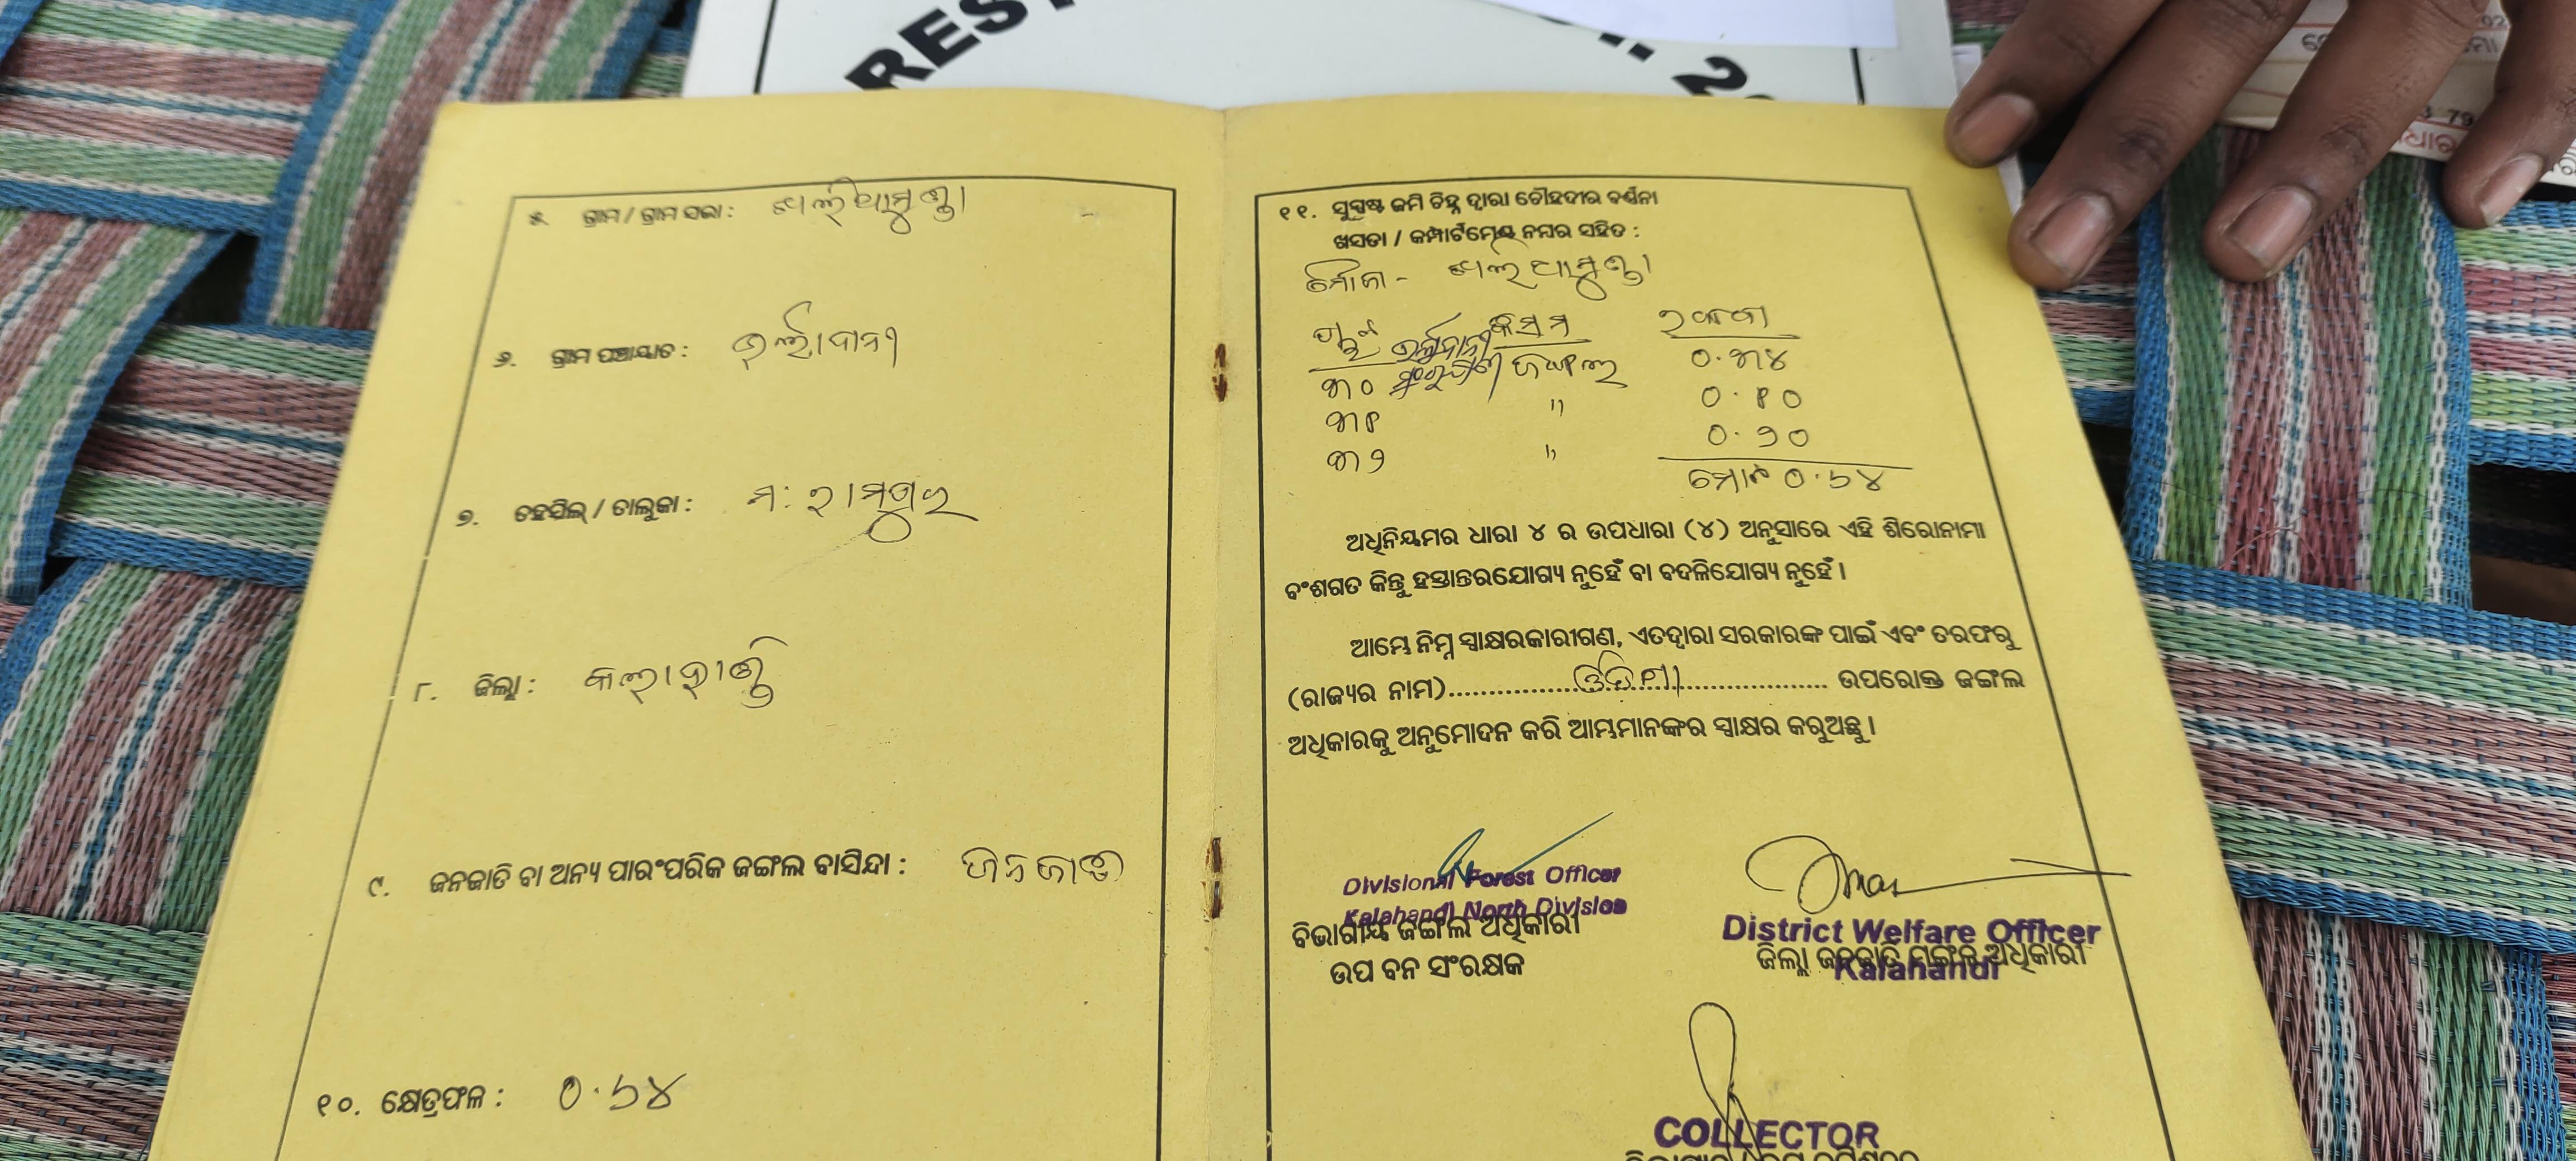 ୫. ଗ୍ରାମ / ଗ୍ରାମ ସଭା :
୬. ଗ୍ରାମ ପଞ୍ଚାୟାତ :
୭. ତହସିଲ୍ / ତାଲୁକା : ମ: ରାମପୁର
୮. ଜିଲ୍ଲା : କଳାହାଣ୍ଡି
୯. ଜନଜାତି ବା ଅନ୍ୟ ପାରଂପରିକ ଜଙ୍ଗଲ ବାସିନ୍ଦା : ଜନଜାତି
୧୦. କ୍ଷେତ୍ରଫଳ : ୦.୬୪
୧୧. ସୁସ୍ପଷ୍ଟ ଜମି ଚିହ୍ନ ଦ୍ୱାରା ଚୌହଦୀର ବର୍ଣ୍ଣନା
ଖସଡା / କମ୍ପାର୍ଟମେଣ୍ଟ ନମ୍ବର ସହିତ :
ମୌଜା -
ପ୍ଲଟ କିସମ ରକବା
୩୦ ଜଙ୍ଗଲ ୦.୩୪
୩୧ " ୦.୧୦
୩୨ " ୦.୨୦
ମୋଟ ୦.୬୪
ଅଧିନିୟମର ଧାରା ୪ ର ଉପଧାରା (୪) ଅନୁସାରେ ଏହି ଶିରୋନାମା
ବଂଶଗତ କିନ୍ତୁ ହସ୍ତାନ୍ତରଯୋଗ୍ୟ ନୁହେଁ ବା ବଦଳିଯୋଗ୍ୟ ନୁହେଁ ।
ଆମ୍ଭେ ନିମ୍ନ ସ୍ୱାକ୍ଷରକାରୀଗଣ, ଏତଦ୍ୱାରା ସରକାରଙ୍କ ପାଇଁ ଏବଂ ତରଫରୁ
(ରାଜ୍ୟର ନାମ)..................ଓଡିଶା.................. ଉପରୋକ୍ତ ଜଙ୍ଗଲ
ଅଧିକାରକୁ ଅନୁମୋଦନ କରି ଆମ୍ଭମାନଙ୍କର ସ୍ୱାକ୍ଷର କରୁଅଛୁ ।
Divisional Forest Officer
Kalahandi North Division
ବିଭାଗୀୟ ଜଙ୍ଗଲ ଅଧିକାରୀ
ଉପ ବନ ସଂରକ୍ଷକ
District Welfare Officer
ଜିଲ୍ଲା ଜନଜାତି ମଙ୍ଗଳ ଅଧିକାରୀ
Kalahandi
COLLECTOR